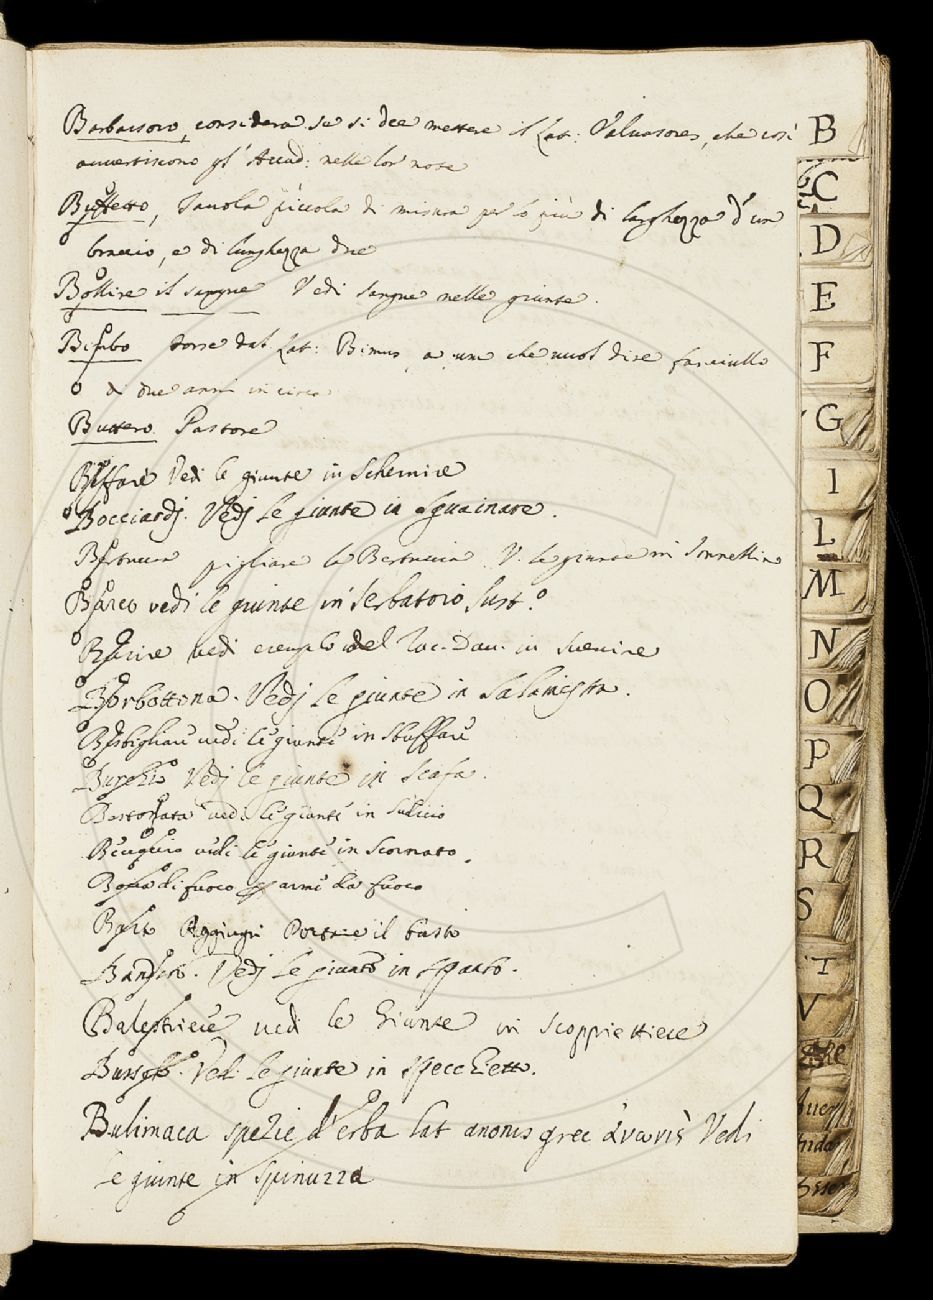 Barbassoro, considera se si dee mettere il Lat: Valuasores, che così
auuertiscono gl' Accad: nelle lor note
Buffetto, Tauola piccola di misura per lo più di larghezza d'un
braccio, e di lunghezza due
Bollire il sangue Vedi Sangue nelle giunte.
Bimbo forse dal Lat: Bimus, a un che uuol dire fanciullo
di due anni in circa
Buttero Pastore
Beffare Vedi le giunte in Schernire
Bocciardj. Vedj le giunte in Sguainare.
Bertuccia pigliare la Bertuccia V. le giunte in
Barco vedi le giunte in Serbatoio Sust.º
uedi esempio del Tac. Dau. in Suenire
Borbottona. Vedj le giunte in Salamistra.
Bisbigliare uedi le giunte in Sbuffare
Burchio Vedj le giunte in Scafa.
Bastonata uedi le giunte in
uedi le giunte in Scornato.
Bocca di fuoco armi da fuoco
Basto Aggiugni Portare il basto
Vedj le giunte in Spanto.
Balestriere uedi le Giunte in Scoppiettiere
Bussola. Vedi le giunte in Specchietto.
Bulimaca spezie d'erba lat anonis grec ἀνωνὶς Vedi
le giunte in Spinuzza
B
C
D
E
F
G
I
L
M
N
O
P
Q
R
S
T
V